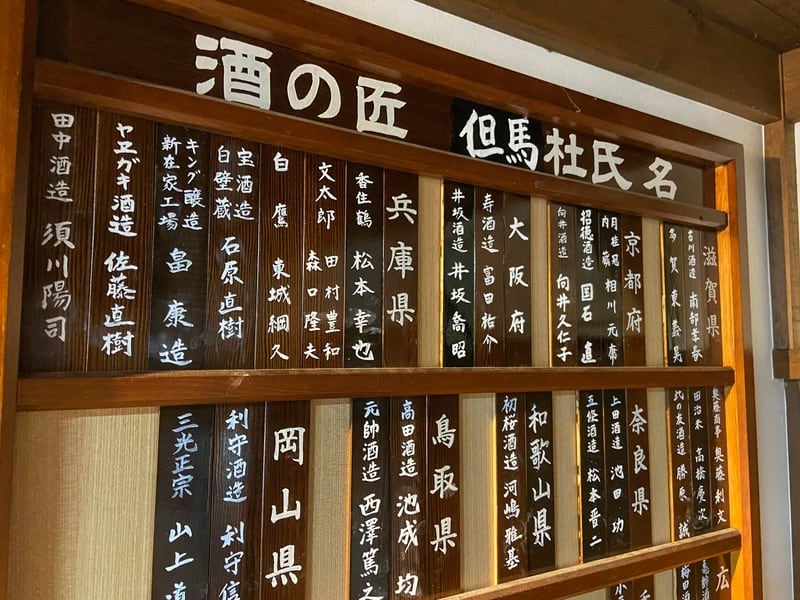 酒の匠 但馬杜氏名
滋賀県
吉川酒造 南部孝
多賀 東
京都府
月桂冠
内蔵 相川元
招徳酒造 国石 直
向井酒造 向井久仁子
大阪府
寿酒造 富田祐介
井坂酒造 井坂喬昭
兵庫県
香住鶴 松本幸也
文太郎 田村豊和
森口隆夫
白鷹 東城綱久
宝酒造
白壁蔵 石原直樹
キング醸造
新在家工場 畠康造
ヤヱガキ酒造 佐藤直樹
田中酒造 須川陽司
奥藤商事 奥藤利文
田治米 高橋慶次
此の友酒造 勝原 誠
奈良県
上田酒造 池田 功
五條酒造 松本晋二
和歌山県
初桜酒造 河嶋雅基
鳥取県
高田酒造 池成 均
元帥酒造 西澤篤之
岡山県
利守酒造 利守信
三光正宗 山上
広